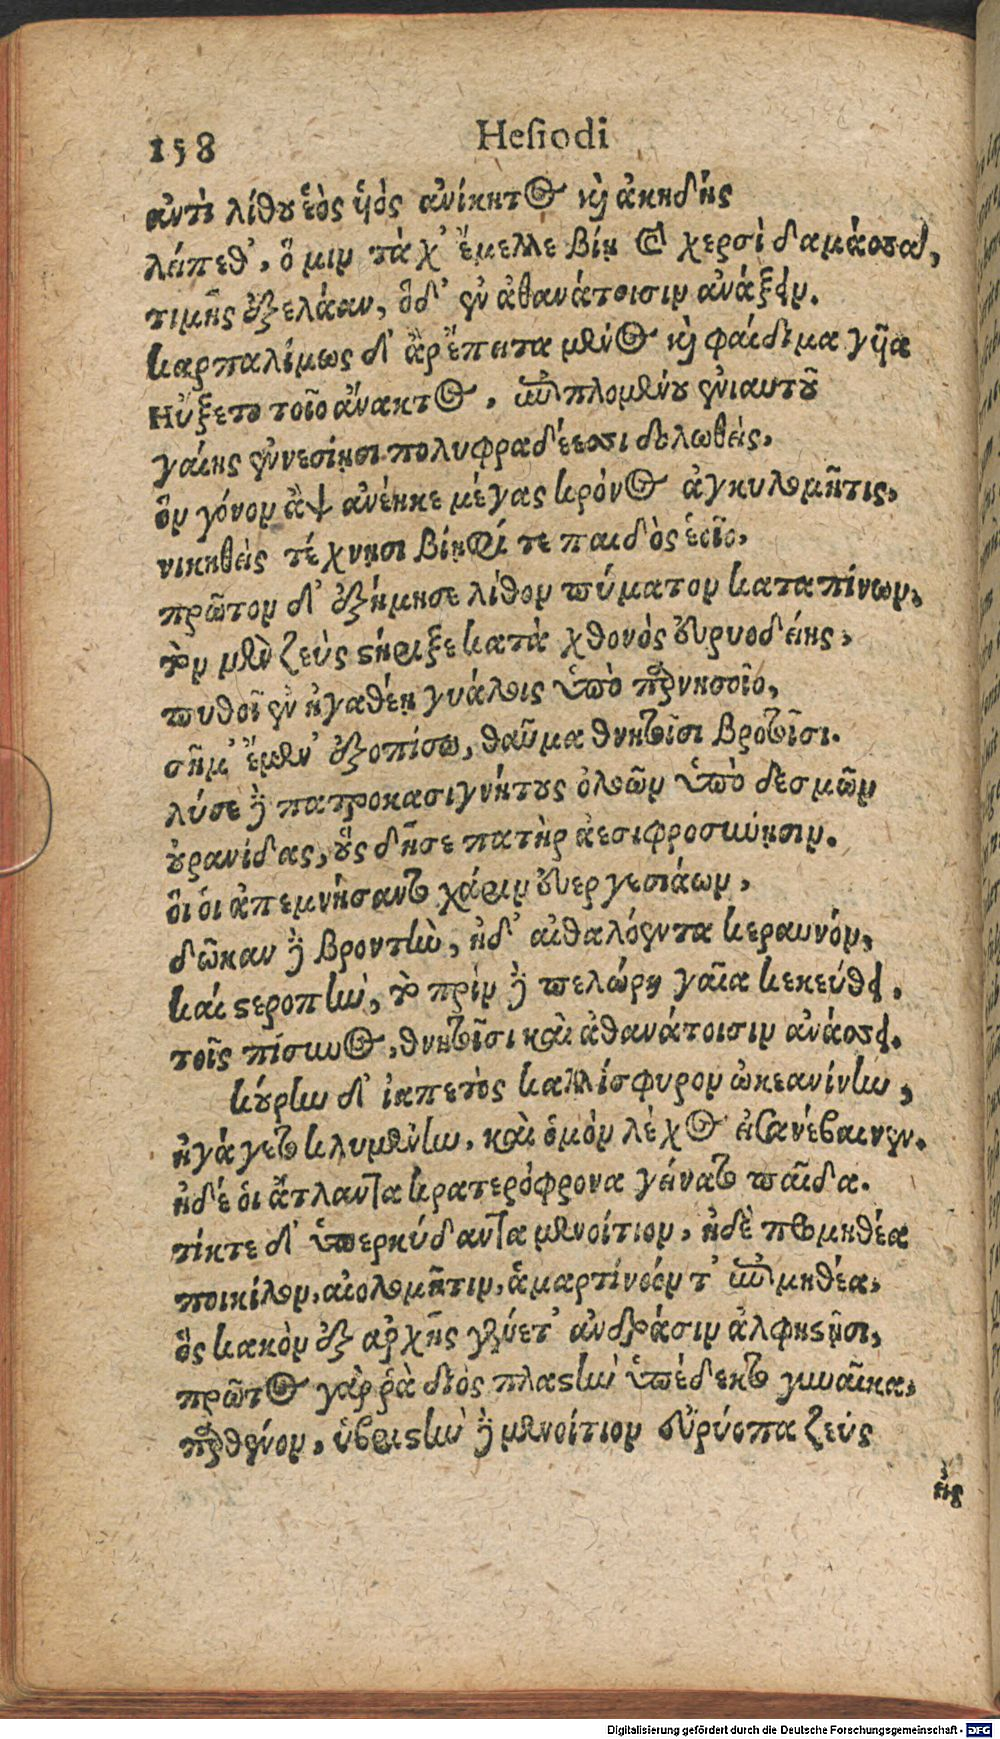 158 Hesiodi
ἀντὶ λίθου ἑὸς υἱὸς ἀνίκητος καὶ ἀκηδὴς
λείπεθ', ὅ μιν τὰχ' ἔμελλε βίῃ καὶ χερσὶ δαμάσσας,
τιμῆς ἐξελάαν, ὅδ' ἐν ἀθανάτοισιν ἀνάξειν.
καρπαλίμως δ' ἂρ ἔπειτα μένος καὶ φαίδιμα γυῖα
Ηὔξετο τοῖο ἄνακτος, ἐπιπλομένου ἐνιαυτοῦ
γαίης ἐννεσίῃσι πολυφραδέεσσι δολωθεὶς,
ὃν γόνον ἂψ ἀνέηκε μέγας κρόνος ἀγκυλομῆτις,
νικηθεὶς τέχνῃσι βίηφί τε παιδὸς ἑοῖο,
πρῶτον δ' ἐξήμησε λίθον πύματον καταπίνων,
τὸν μὲν ζεὺς στήριξε κατὰ χθονὸς εὐρυοδείης,
πυθοῖ ἐν ἠγαθέῃ γυάλοις ὑπὸ παρνησοῖο,
σῆμ' ἔμεν' ἐξοπίσω, θαῦμα θνητοῖσι βροτοῖσι.
λύσε δὲ πατροκασιγνήτους ὀλοῶν ὑπὸ δεσμῶν
οὐρανίδας, οὓς δῆσε πατὴρ ἀεσιφροσύνῃσιν.
οἳ οἱ ἀπεμνήσαντο χάριν εὐεργεσιάων,
δῶκαν δὲ βροντὴν, ἠδ' αἰθαλόεντα κεραυνόν,
καί στεροπὴν, τὸ πρὶν δὲ πελώρη γαῖα κεκεύθει.
τοῖς πίσυνος, θνητοῖσι καὶ ἀθανάτοισιν ἀνάσσει.
κούρην δ' ἰαπετὸς καλλίσφυρον ὠκεανίνην,
ἠγάγετο κλυμένην, καὶ ὁμὸν λέχος εἰσανέβαινεν.
ἡδέ οἱ ἄτλαντα κρατερόφρονα γείνατο παῖδα.
τίκτε δ' ὑπερκύδαντα μενοίτιον, ἠδὲ προμηθέα
ποικίλον, αἰολομῆτιν, ἁμαρτίνοόν τ' ἐπιμηθέα,
ὃς κακὸν ἐξ ἀρχῆς γένετ' ἀνδράσιν ἀλφηστῇσι,
πρῶτος γὰρ ῥὰ διὸς πλαστὴν ὑπέδεκτο γυναῖκα,
παρθένον, ὑβριστὴν δὲ μενοίτιον εὐρύοπα ζεὺς
εἰς
Digitalisierung gefördert durch die Deutsche Forschungsgemeinschaft - DFG